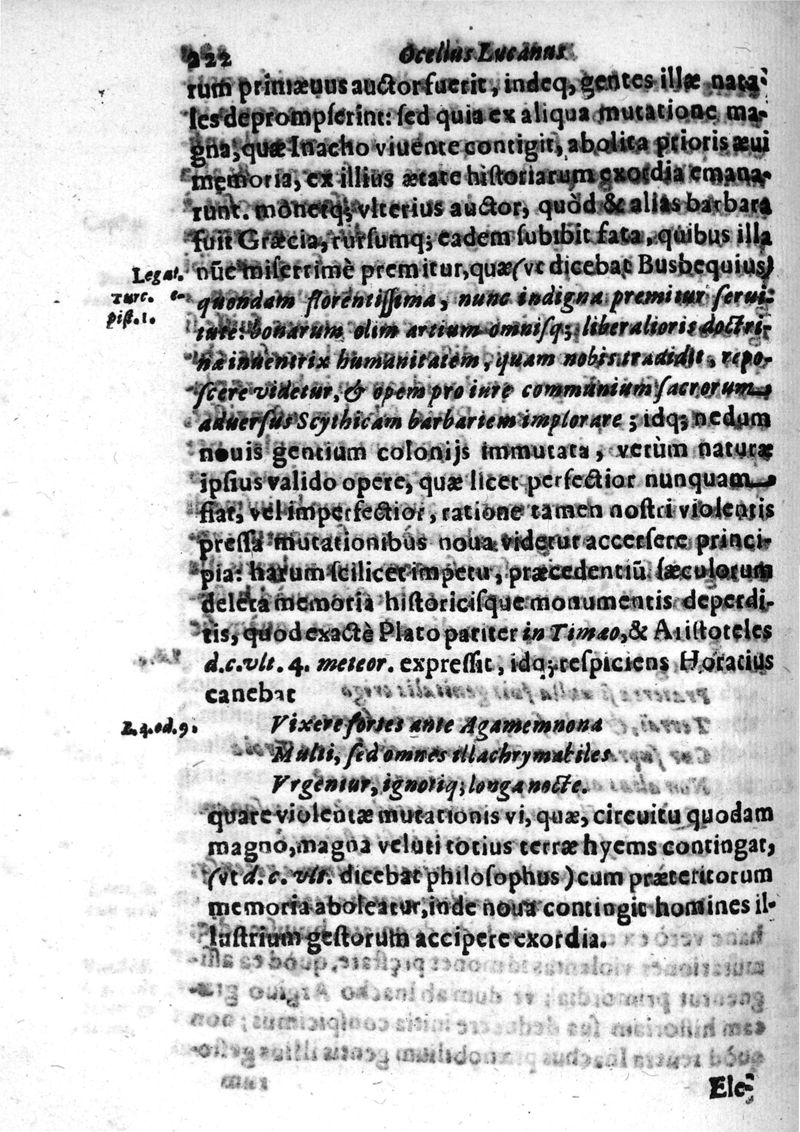 222 Ocellus Lucanus
rum primæuus auctor fuerit, indeq, gentes illæ nata-
les deprompserint: sed quia ex aliqua mutatione ma-
gna, quæ Inacho viuente contigit, abolita prioris æui
memoria, ex illius ætate historiarum exordia emana-
runt. monetq; vlterius auctor, quòd & alias barbara
fuit Græcia, rursumq; eadem subibit fata, quibus illa
Legat. nūc miserrimè premitur, quæ (vt dicebat Busbequius)
Turc. e- quondam florentissima, nunc indigna premitur serui-
pist. 1. tute: bonarum olim artium omnisq; liberalioris doctri-
na inuentrix humanitatem, quam nobis tradidit, repo-
scere videtur, & opem pro iure communium sacrorum
aduersus Scythicam barbariem implorare; idq; nedum
nouis gentium colonijs immutata, verùm naturæ
ipsius valido opere, quæ licet perfectior nunquam
fiat, vel imperfectior, ratione tamen nostri violentis
pressa mutationibus noua videtur accersere princi-
pia: harum scilicet impetu, præcedentiū sæculorum
deleta memoria historicisque monumentis deperdi-
tis, quod exactè Plato pariter in Timæo, & Aristoteles
d.c.vlt. 4. meteor. expressit, idq; respiciens Horatius
canebat
L.4.od.9. Vixere fortes ante Agamemnona
Multi, sed omnes illachrymabiles
Vrgentur, ignotiq; longa nocte.
quare violentæ mutationis vi, quæ, circuitu quodam
magno, magna veluti totius terræ hyems contingat,
(vt d. c. vlt. dicebat philosophus) cum præteritorum
memoria aboleatur, inde noua contingit homines il-
lustrium gestorum accipere exordia.
Ele-